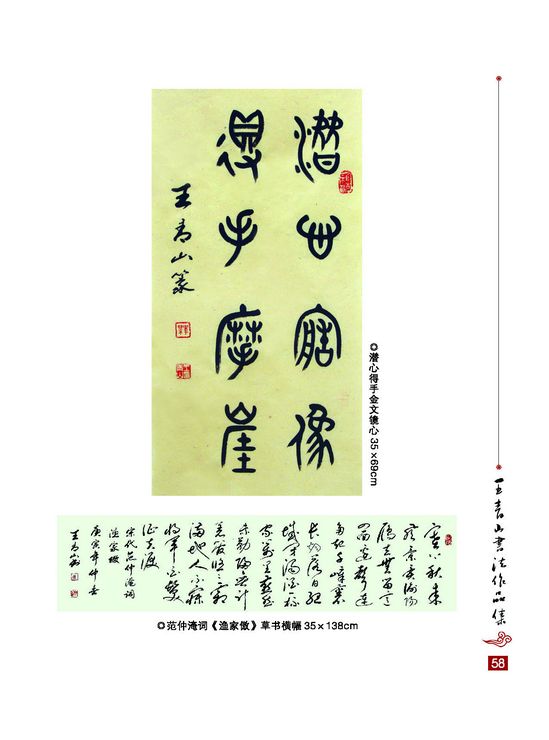 潜心窟像
得手摩崖
王青山篆
◎潜心得手金文镜心 35×69cm
塞下秋来
风景异衡阳
雁去无留意
四面边声连
角起千嶂里
长烟落日孤
城闭浊酒一杯
家万里燕然
未勒归无计
羌管悠悠霜
满地人不寐
将军白发
征夫泪
宋代范仲淹词
渔家傲
庚寅年仲春
王青山书
◎范仲淹词《渔家傲》草书横幅 35×138cm
王青山书法作品集
58